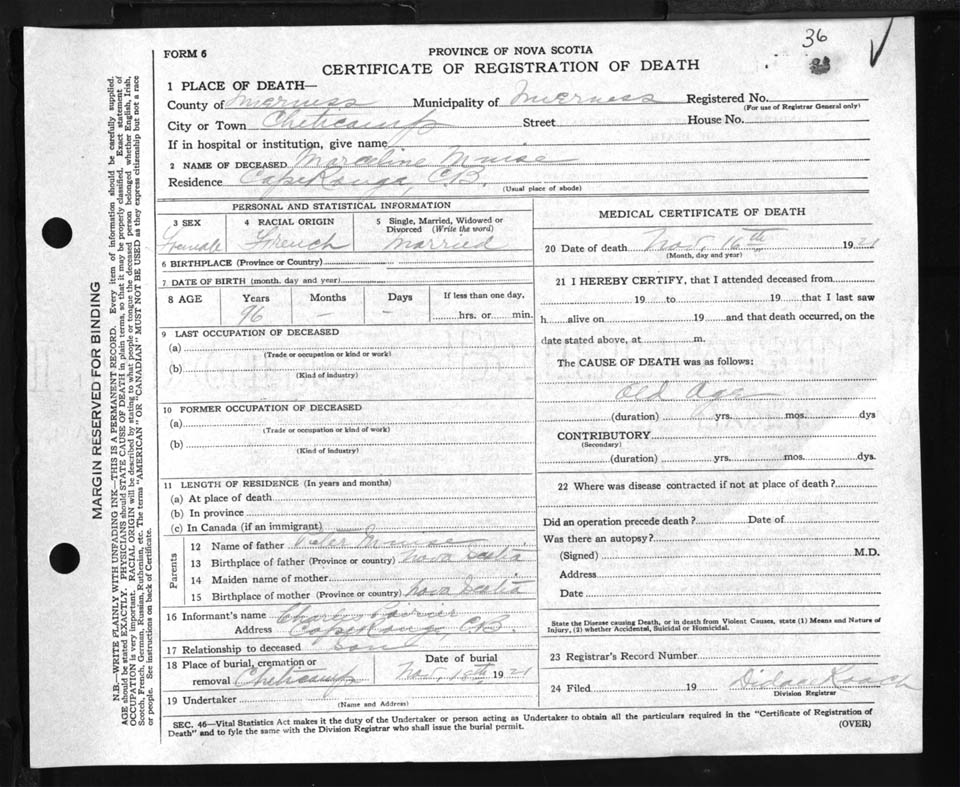 36
FORM 6
PROVINCE OF NOVA SCOTIA
CERTIFICATE OF REGISTRATION OF DEATH
1 PLACE OF DEATH—
County of Inverness Municipality of Inverness Registered No.
(For use of Registrar General only)
City or Town Cheticamp Street House No.
If in hospital or institution, give name
2 NAME OF DECEASED Marceline Muise
Residence Cape Rouge, C.B.
(Usual place of abode)
PERSONAL AND STATISTICAL INFORMATION
3 SEX 4 RACIAL ORIGIN 5 Single, Married, Widowed or Divorced (Write the word)
Female French Married
6 BIRTHPLACE (Province or Country)
7 DATE OF BIRTH (month. day and year)
8 AGE Years Months Days If less than one day,
96 – – hrs. or min.
9 LAST OCCUPATION OF DECEASED
(a)
(Trade or occupation or kind or work)
(b)
(Kind of industry)
10 FORMER OCCUPATION OF DECEASED
(a)
(Trade or occupation or kind of work)
(b)
(Kind of industry)
11 LENGTH OF RESIDENCE (In years and months)
(a) At place of death
(b) In province
(c) In Canada (if an immigrant)
Parents
12 Name of father Peter Muise
13 Birthplace of father (Province or country) Nova Scotia
14 Maiden name of mother
15 Birthplace of mother (Province or country) Nova Scotia
16 Informant's name Charles Poirier
Address Cape Rouge, C.B.
17 Relationship to deceased Son
18 Place of burial, cremation or removal Cheticamp Date of burial Nov. 18th 1921
19 Undertaker
(Name and Address)
MEDICAL CERTIFICATE OF DEATH
20 Date of death Nov. 16th 1921
(Month, day and year)
21 I HEREBY CERTIFY, that I attended deceased from
19 to 19 that I last saw
h alive on 19 and that death occurred, on the
date stated above, at m.
The CAUSE OF DEATH was as follows:
Old Age
(duration) yrs. mos. dys
CONTRIBUTORY
(Secondary)
(duration) yrs. mos. dys.
22 Where was disease contracted if not at place of death?
Did an operation precede death? Date of
Was there an autopsy?
(Signed) M.D.
Address
Date
State the Disease causing Death, or in death from Violent Causes, state (1) Means and Nature of
Injury, (2) whether Accidental, Suicidal or Homicidal.
23 Registrar's Record Number
24 Filed 19 Didace Roach
Division Registrar
SEC. 46—Vital Statistics Act makes it the duty of the Undertaker or person acting as Undertaker to obtain all the particulars required in the "Certificate of Registration of
Death" and to fyle the same with the Division Registrar who shall issue the burial permit.
(OVER)
MARGIN RESERVED FOR BINDING
N.B.—WRITE PLAINLY WITH UNFADING INK—THIS IS A PERMANENT RECORD. Every item of information should be carefully supplied.
AGE should be stated EXACTLY. PHYSICIANS should STATE CAUSE OF DEATH in plain terms, so that it may be properly classified. Exact statement of
OCCUPATION is very important. RACIAL ORIGIN will be described by stating to what people or tongue the deceased person belonged whether English, Irish,
Scotch, French, German, Russian, Ruthenian, etc. The terms "AMERICAN" OR "CANADIAN" MUST NOT BE USED as they express citizenship but not a race
or people. See instructions on back of Certificate.